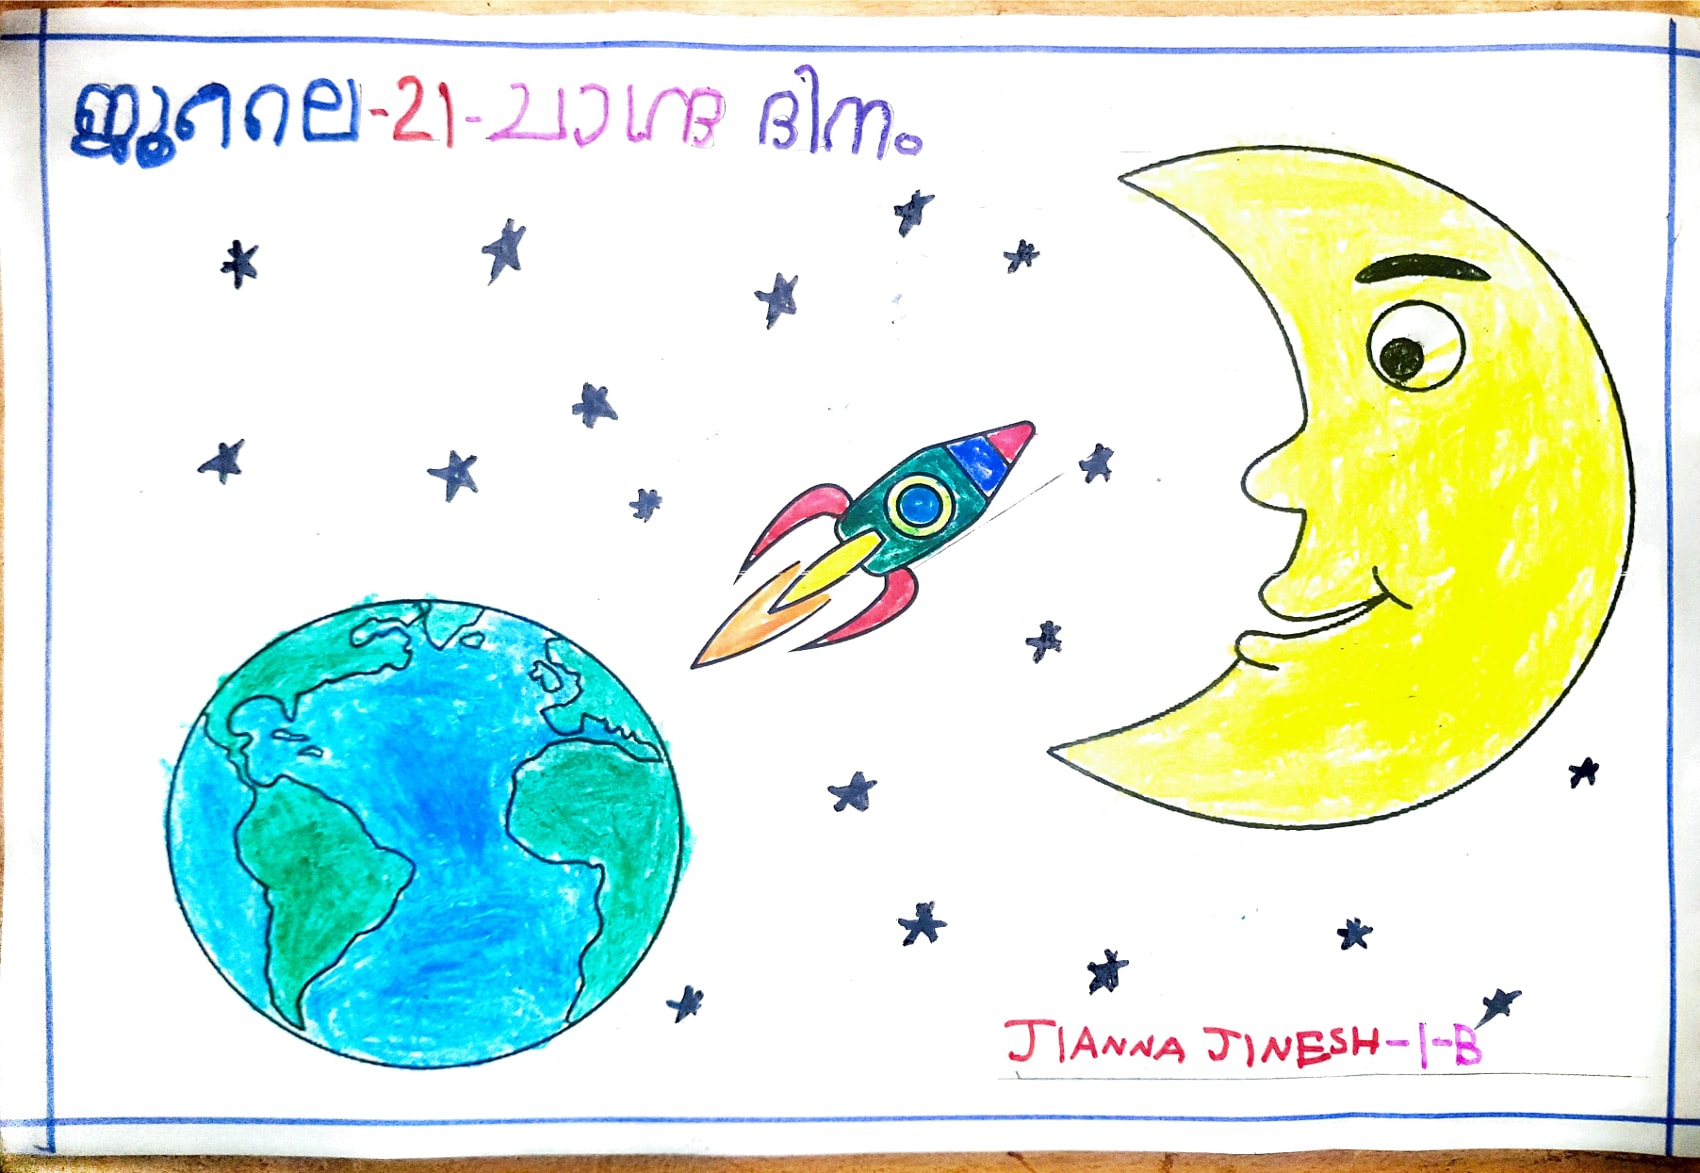 ജൂലൈ-21-ചാന്ദ്ര ദിനം
JIANNA JINESH-1-B